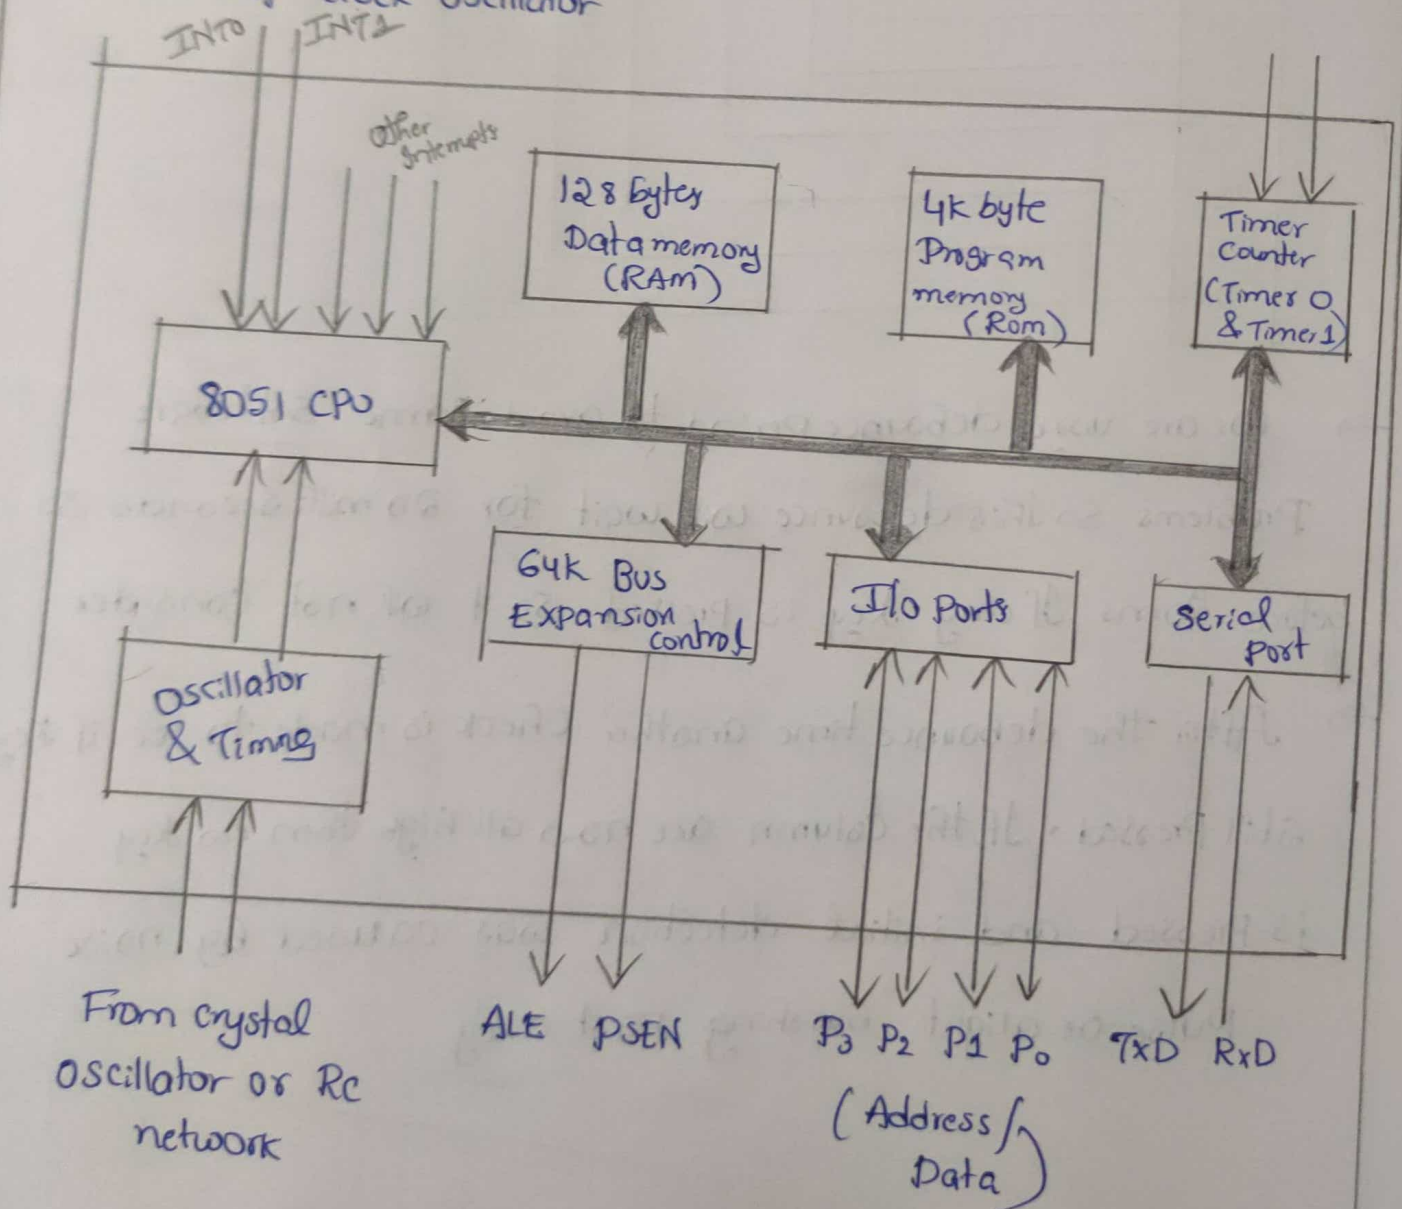 clock oscillator
INT0 INT1
Other
Interrupts
128 bytes
Data memory
(RAM)
4K byte
Program
memory
(Rom)
Timer
Counter
(Timer 0
& Timer 1)
8051 CPU
64K Bus
Expansion
control
I/o Ports
Serial
Port
Oscillator
& Timng
From crystal
oscillator or Rc
network
ALE PSEN
P3 P2 P1 P0
(Address/
Data)
TxD RxD